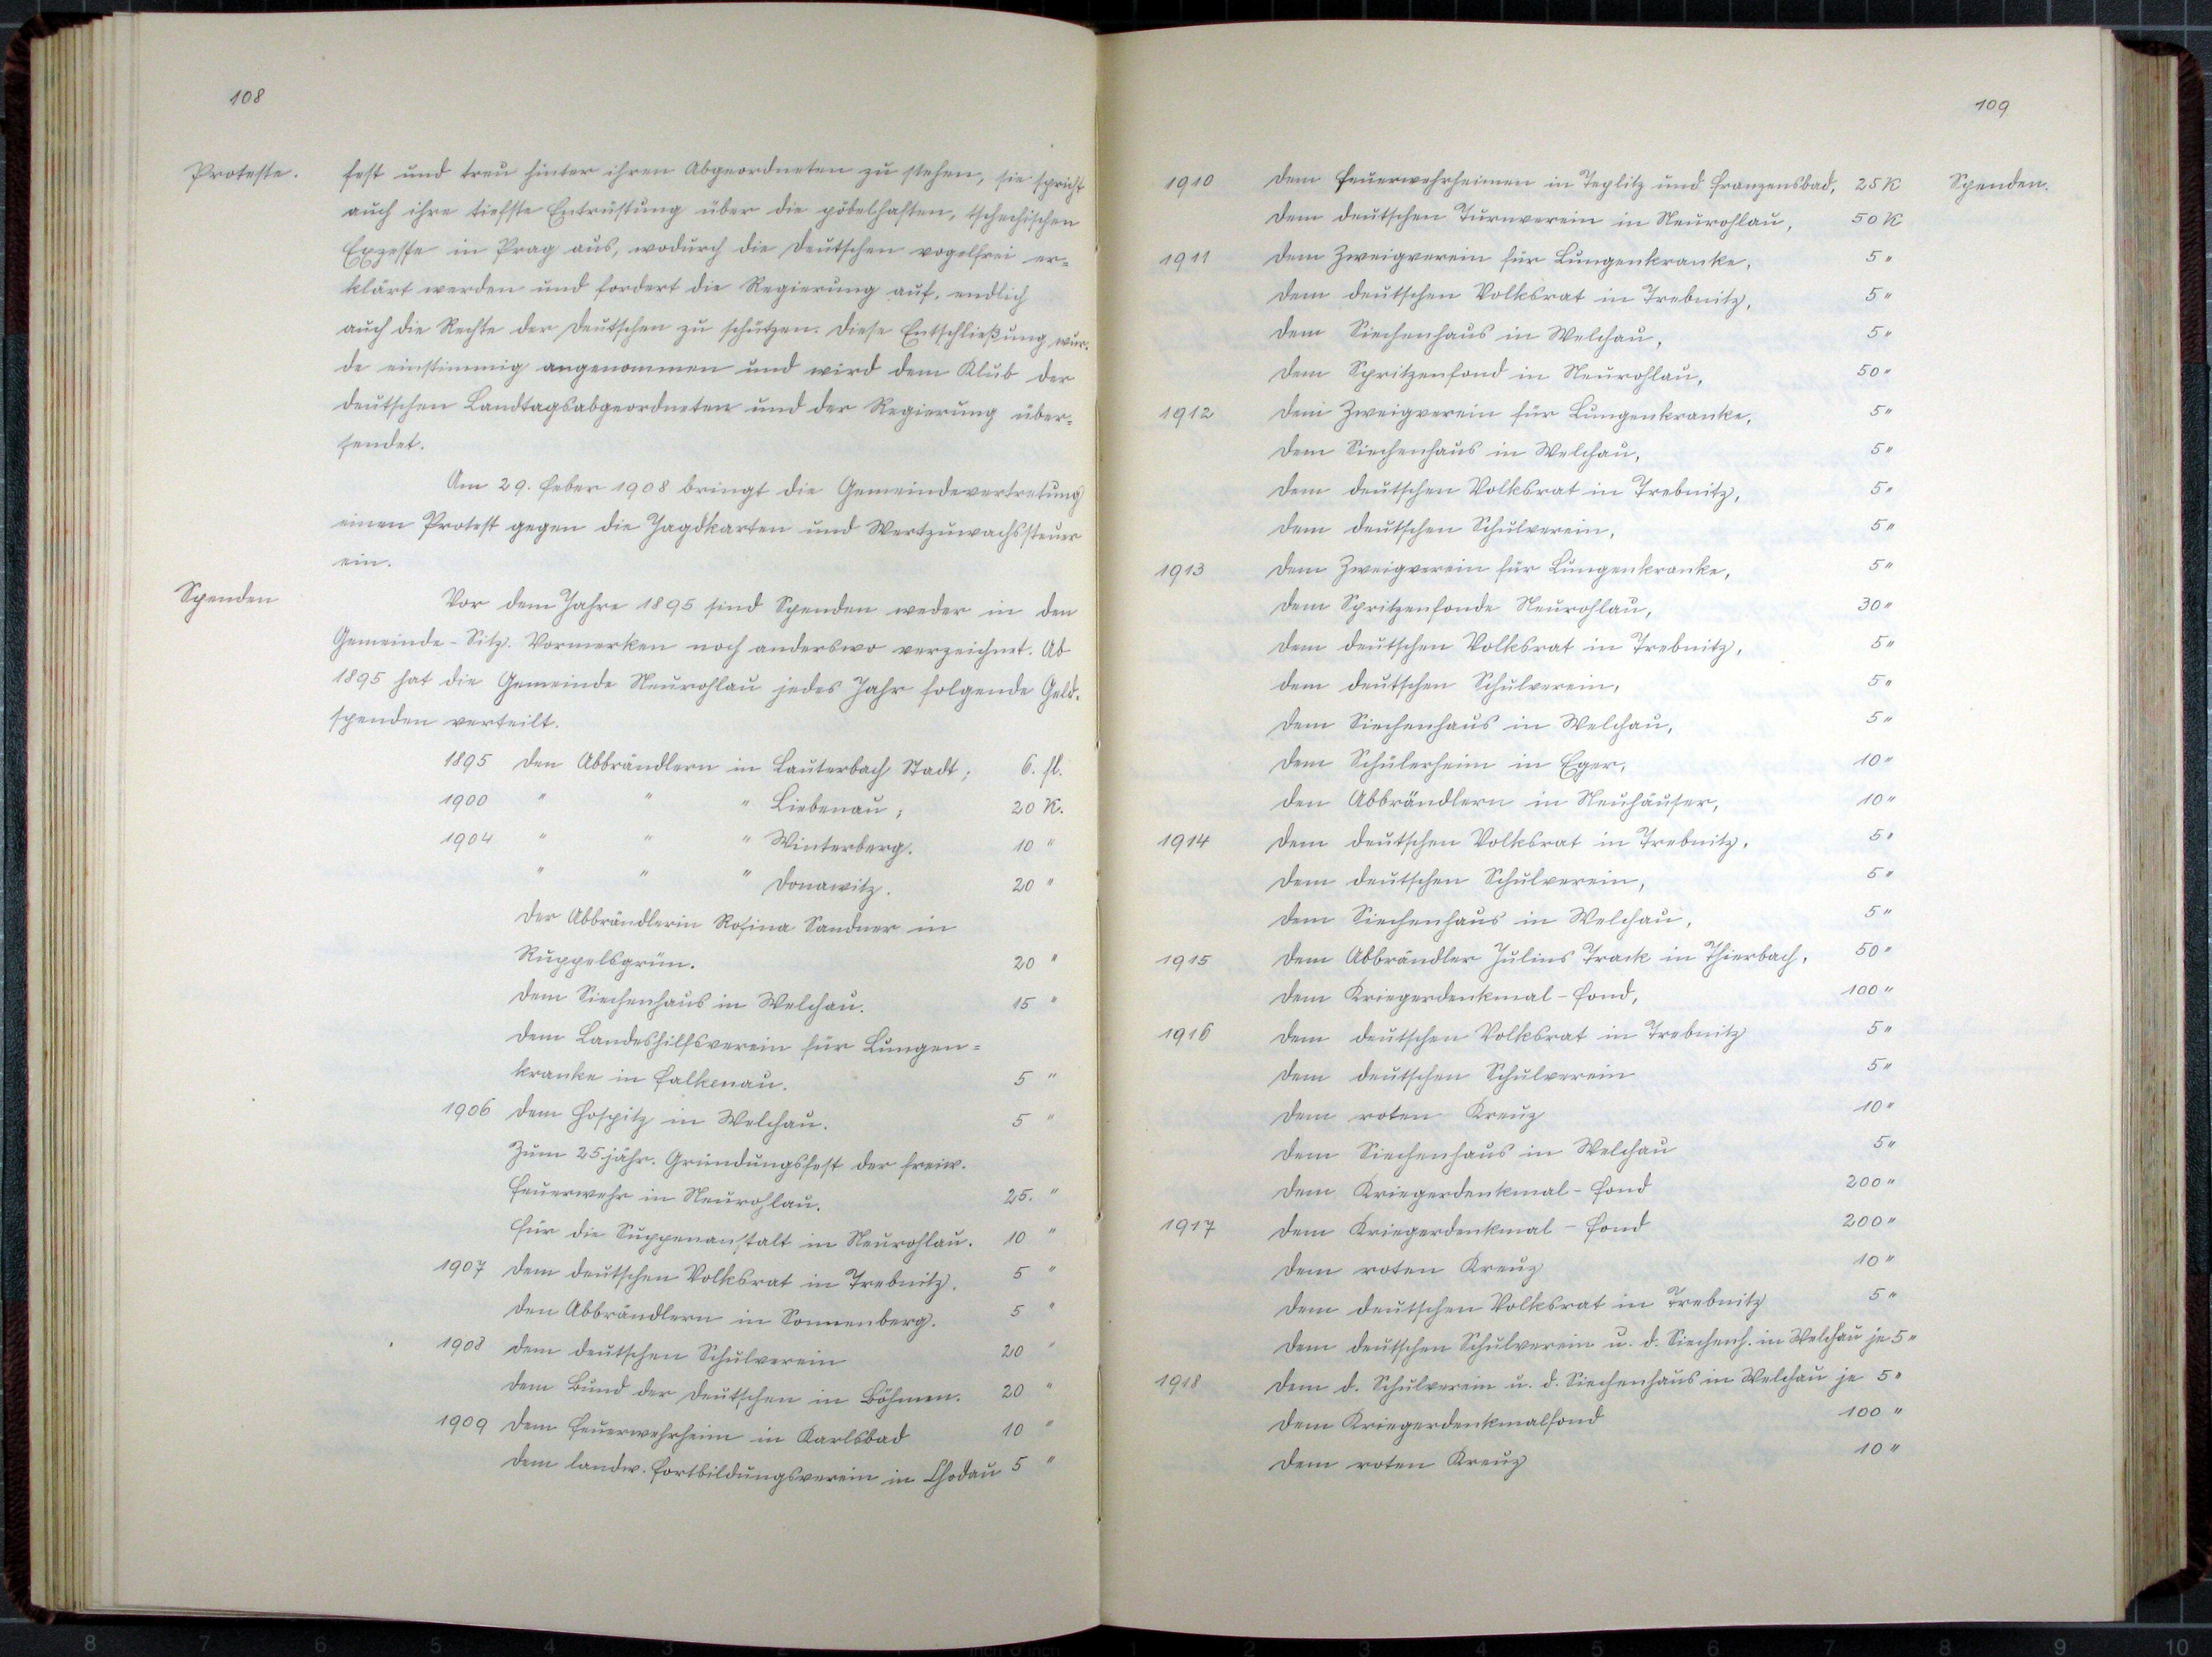 108
Proteste. fest und treu hinter ihren Abgeordneten zu stehen, sie spricht
auch ihre tiefste Entrüstung über die pöbelhaften, tschechischen
Exzesse in Prag aus, wodurch die Deutschen vogelfrei er=
klärt werden und fordert die Regierung auf, endlich
auch die Rechte der Deutschen zu schützen. Diese Entschließung wur-
de einstimmig angenommen und wird dem Klub der
deutschen Landtagsabgeordneten und der Regierung über=
sendet.
Am 29. Feber 1908 bringt die Gemeindevertretung
einen Protest gegen die Jagdkarten und Wertzuwachssteuer
ein.
Spenden Vor dem Jahre 1895 sind Spenden weder in den
Gemeinde-Sitz. Vormerken noch anderswo verzeichnet. Ab
1895 hat die Gemeinde Neurohlau jedes Jahr folgende Geld-
spenden verteilt.
1895 den Abbrändlern in Lauterbach Stadt; 6. fl.
1900 " " " Liebenau; 20 K.
1904 " " " Winterberg. 10 "
" " " Donawitz. 20 "
der Abbrändlerin Rosina Sandner in
Ruppelsgrün. 20 "
dem Siechenhaus in Welchau. 15 "
dem Landeshilfsverein für Lungen=
kranke in Falkenau. 5 "
1906 dem Hospitz in Welchau. 5 "
Zum 25jähr. Gründungsfest der freiw.
Feuerwehr in Neurohlau. 25. "
Für die Suppenanstalt in Neurohlau. 10 "
1907 dem deutschen Volksrat in Trebnitz. 5 "
den Abbrändlern in Sonnenberg. 5 "
1908 dem deutschen Schulverein 20 "
dem Bund der Deutschen in Böhmen. 20 "
1909 dem Feuerwehrheim in Karlsbad 10 "
dem landw. Fortbildungsverein in Chodau 5 "
109
1910 dem Feuerwehrheimen in Teplitz und Franzensbad, 25 K Spenden.
dem deutschen Turnverein in Neurohlau, 50 K
1911 dem Zweigverein für Lungenkranke, 5 "
dem deutschen Volksrat in Trebnitz, 5 "
dem Siechenhaus in Welchau, 5 "
dem Spritzenfond in Neurohlau, 50 "
1912 dem Zweigverein für Lungenkranke, 5 "
dem Siechenhaus in Welchau, 5 "
dem deutschen Volksrat in Trebnitz, 5 "
dem deutschen Schulverein, 5 "
1913 dem Zweigverein für Lungenkranke, 5 "
dem Spritzenfonde Neurohlau, 30 "
dem deutschen Volksrat in Trebnitz, 5 "
dem deutschen Schulverein, 5 "
dem Siechenhaus in Welchau, 5 "
dem Schülerheim in Eger, 10 "
den Abbrändlern in Neuhäuser, 10 "
1914 dem deutschen Volksrat in Trebnitz, 5 "
dem deutschen Schulverein, 5 "
dem Siechenhaus in Welchau, 5 "
1915 dem Abbrändler Julius Track in Thierbach, 50 "
dem Kriegerdenkmal-Fond, 100 "
1916 dem deutschen Volksrat in Trebnitz 5 "
dem deutschen Schulverein 5 "
dem roten Kreuz 10 "
dem Siechenhaus in Welchau 5 "
dem Kriegerdenkmal-Fond 200 "
1917 dem Kriegerdenkmal-Fond 200 "
dem roten Kreuz 10 "
dem deutschen Volksrat in Trebnitz 5 "
dem deutschen Schulverein u. d. Siechenh. in Welchau je 5 "
1918 dem d. Schulverein u. d. Siechenhaus in Welchau je 5 "
dem Kriegerdenkmalfond 100 "
dem roten Kreuz 10 "
8 7 6 5 4 3 2 1 2 3 4 5 6 7 8 9 10